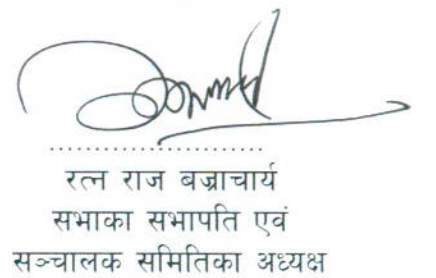 रत्न राज बज्राचार्य
सभाका सभापति एवं
सञ्चालक समितिका अध्यक्ष